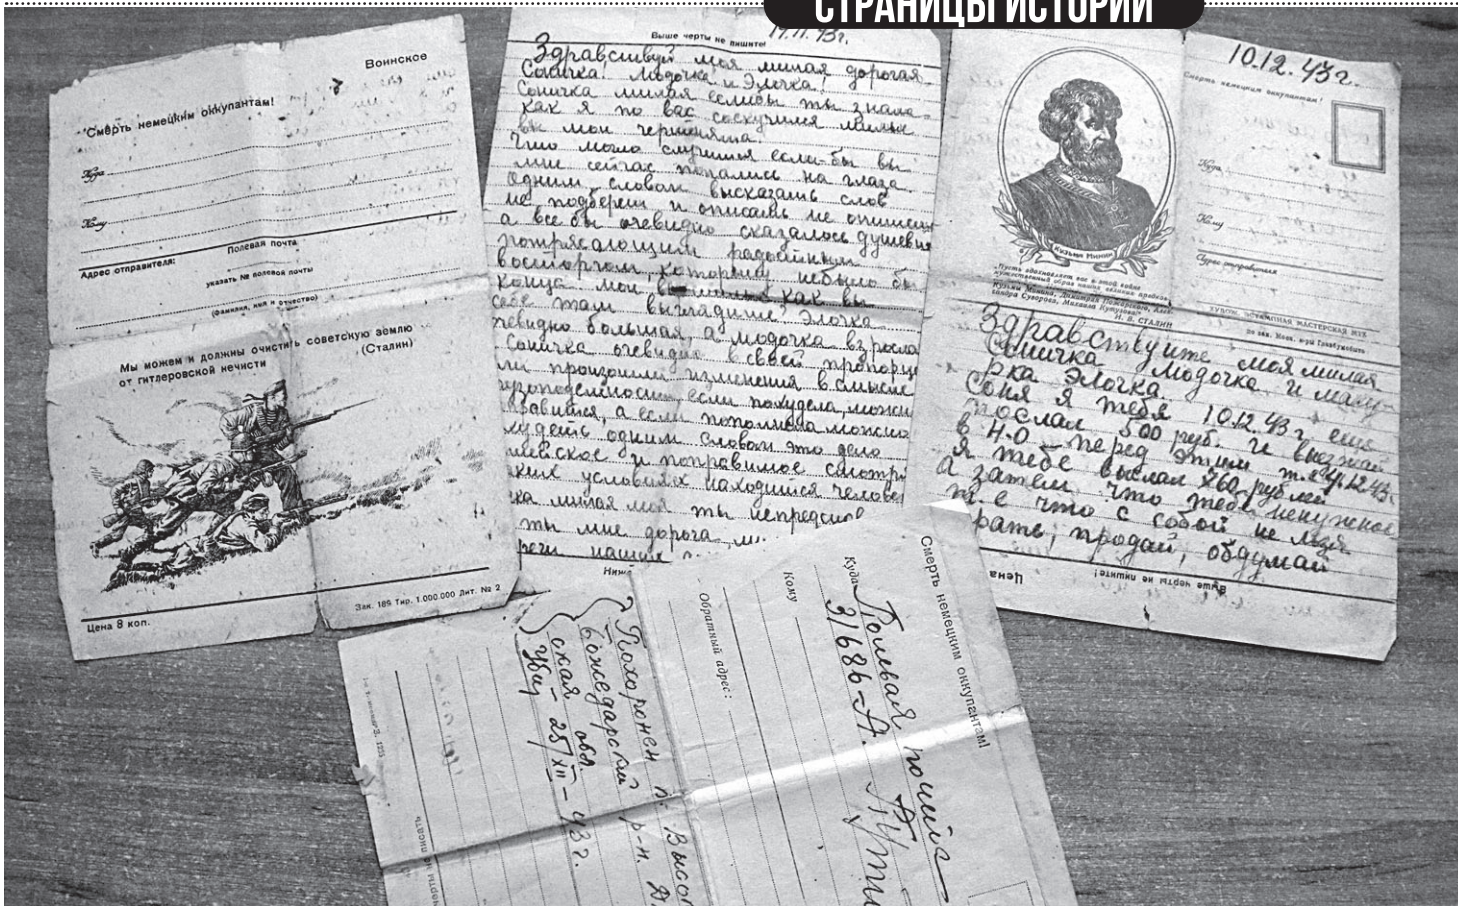 СТРАНИЦЫ ИСТОРИИ
Воинское
Смерть немецким оккупантам!
Куда
Кому
Полевая почта
Адрес отправителя:
указать № полевой почты
(фамилия, имя и отчество)
Мы можем и должны очистить советскую землю
от гитлеровской нечисти
(Сталин)
Цена 8 коп.
Зак. 189 Тир. 1.000.000 Лит. № 2
Выше черты не пишите!
Здравствуй моя милая дорогая
Соничка! Модочка и Элочка!
Соничка милая еслибы ты знала
как я по вас соскучился милые
вы мои чертенята.
Что могло случится если-бы вы
мне сейчас попались на глаза.
Одним словом высказать слов
не подберешь и описать не опишешь
а все бы очевидно сказалось душевн
потрясающим радостным
восторгом, которому небыло бы
конца. мои как вы
себе там выглядише Элочка
чевидно большая, а модочка взросла
Соничка очевидно в своей пропорц
ли произошли изменения в смысле
рузоподемности, если похудела, можн
равится, а если пополнела можно
худеть одним словом это дело
мейское и поправимое смотря
аких условиях находится челове
ка милая моя ты непредстав
ты мне дорога, ми
реги наших
10.12.43г.
Смерть немецким оккупантам!
Куда
Кому
Адрес отправителя
Кузьма Минин
„Пусть вдохновляет вас в этой войне
мужественный образ наших великих предков
Кузьмы Минина, Димитрия Пожарского, Алек-
сандра Суворова, Михаила Кутузова!"
И. В. СТАЛИН
Здравствуите моя милая
Соничка Модочка и
рка Элочка.
Соня я тебя 10.12.43г еще
послал 500 руб. и выезжаю
в Н.О перед этим т.е 4.12.43г.
я тебе выслал 260 рублей
а затем что тебе ненужное
т.е что с собой не
рать, продай, обдумай
Выше черты не пишите!
Цена
Смерть немецким оккупантам!
Куда Полевая почта
31686-А.
Кому
Обратный адрес:
Похоронен п. Высо
Божедарский р-н. Д
ская обл.
Убит - 25/XII - 43г.
черты не писать